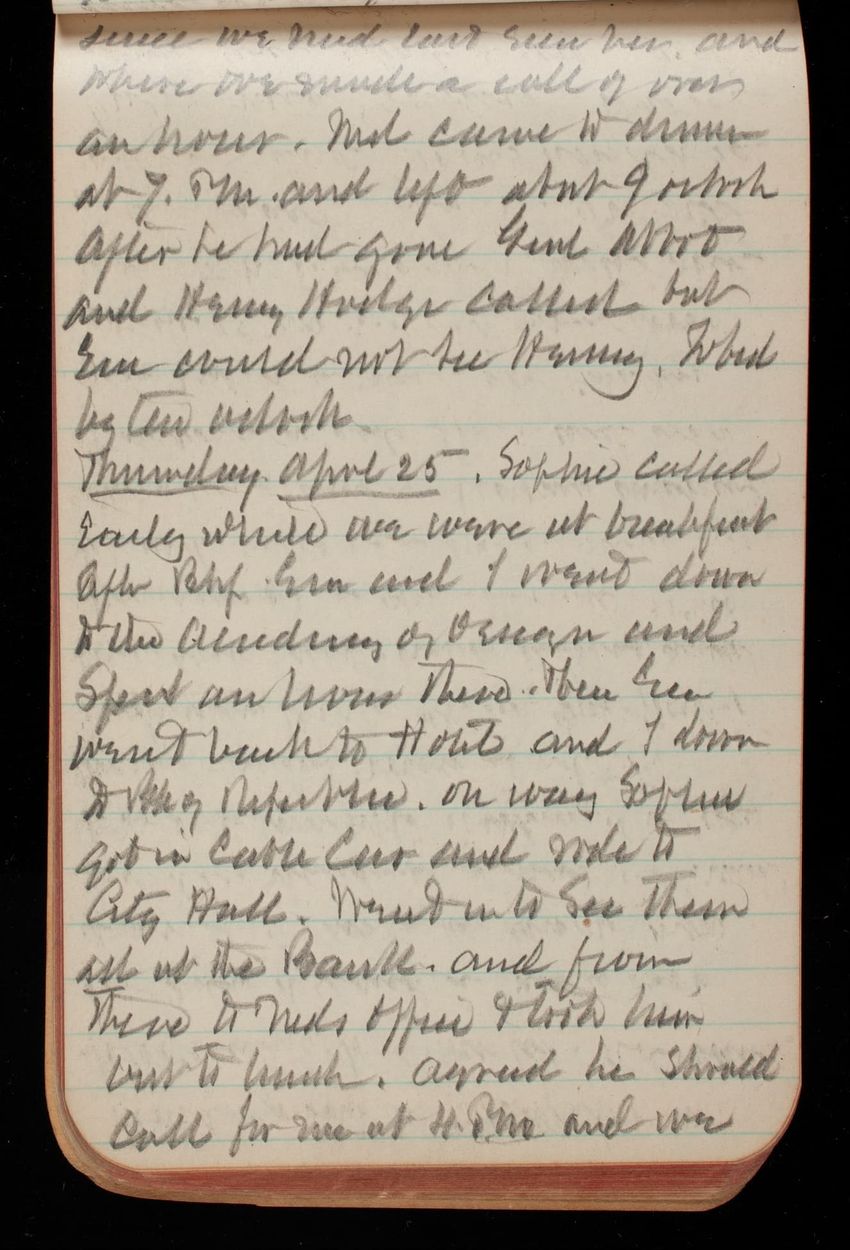 since we had last seen her. and
where we made a call of over
an hour. Ned came to dinner
at 7. P.M. and left about 9 oclock
After he had gone Genl Abbot
and Henry Hodge called but
Em could not see Henry. To bed
by ten oclock
Thursday April 25. Sophie called
Early while we were at breakfast
After Bkf Em and I went down
to the Academy of Design and
Spent an hour there. Then Em
went back to Hotel and I down
to Bk of Republic. on way Sophie
got in Cable Car and rode to
City Hall. Went in to See them
all at the Bank. and from
there to Neds Office & took him
out to lunch. agreed he Should
Call for me at 4. P.M. and we